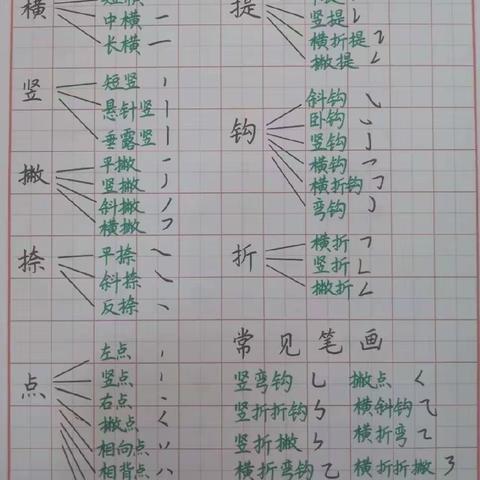 横
中横
长横
竖
短竖
悬针竖
垂露竖
撇
平撇
竖撇
斜撇
横撇
捺
平捺
斜捺
反捺
点
左点
竖点
右点
撇点
相向点
相背点
提
竖提
横折提
撇提
钩
斜钩
卧钩
竖钩
横钩
横折钩
弯钩
折
横折
竖折
撇折
常见笔画
竖弯钩 撇点
竖折折钩 横斜钩
竖折撇 横折弯
横折弯钩 横折折撇